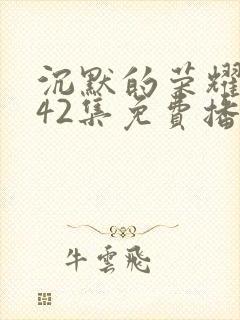 沉默的荣耀
42集免費播
牛雲飛